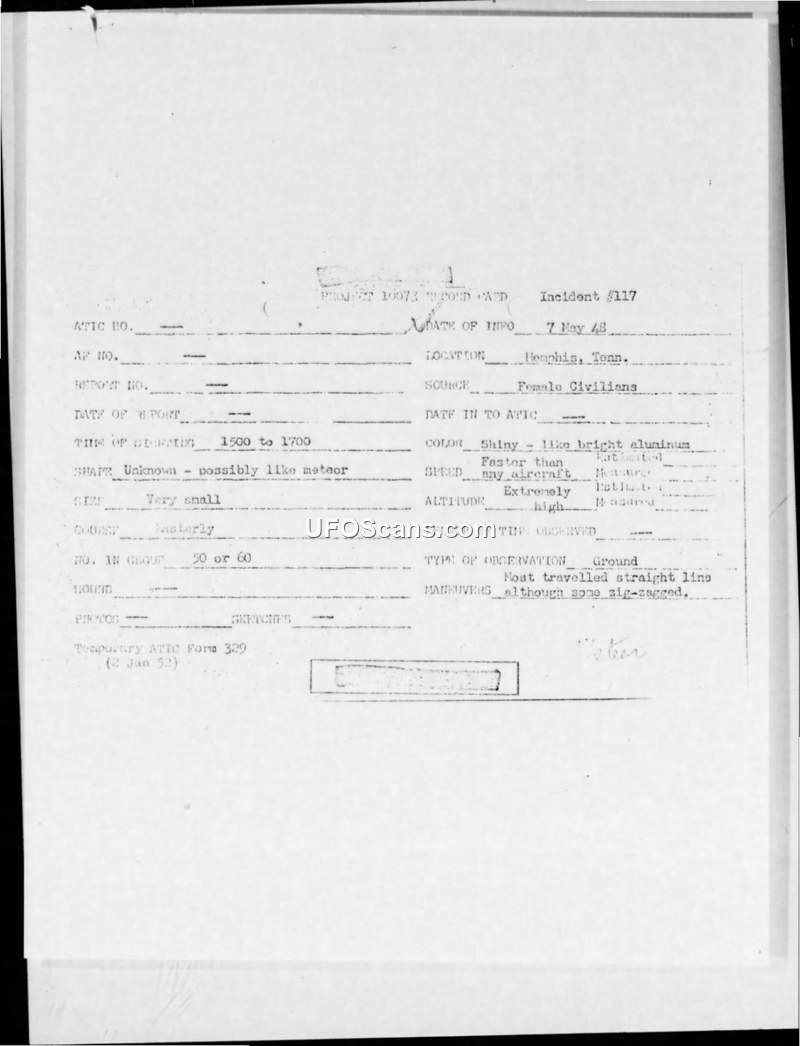 PROJECT 10073 RECORD CARD Incident #117
ATIC NO. --- DATE OF INFO 7 May 48
AF NO. --- LOCATION Memphis, Tenn.
REPORT NO. --- SOURCE Female Civilians
DATE OF REPORT --- DATE IN TO ATIC ---
TIME OF SIGHTING 1500 to 1700 COLOR Shiny - like bright aluminum
SHAPE Unknown - possibly like meteor SPEED Faster than any aircraft Estimated Measured
SIZE Very small ALTITUDE Extremely high Estimated Measured
COURSE Easterly TIME OBSERVED ---
UFOScans.com
NO. IN GROUP 50 or 60 TYPE OF OBSERVATION Ground
SOUND --- MANEUVERS Most travelled straight line although some zig-zagged.
PHOTOS --- SKETCHES ---
Temporary ATIC Form 329
(2 Jan 52)